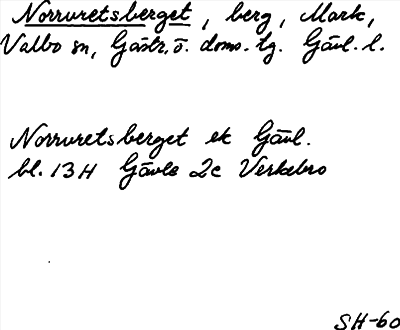 Norruretsberget, berg, Mark,
Valbo sn, Gästr. ö. doms. tg. Gävl. l.
Norruretsberget ek Gävl.
bl. 13H Gävle 2c Verkebro
SH-60